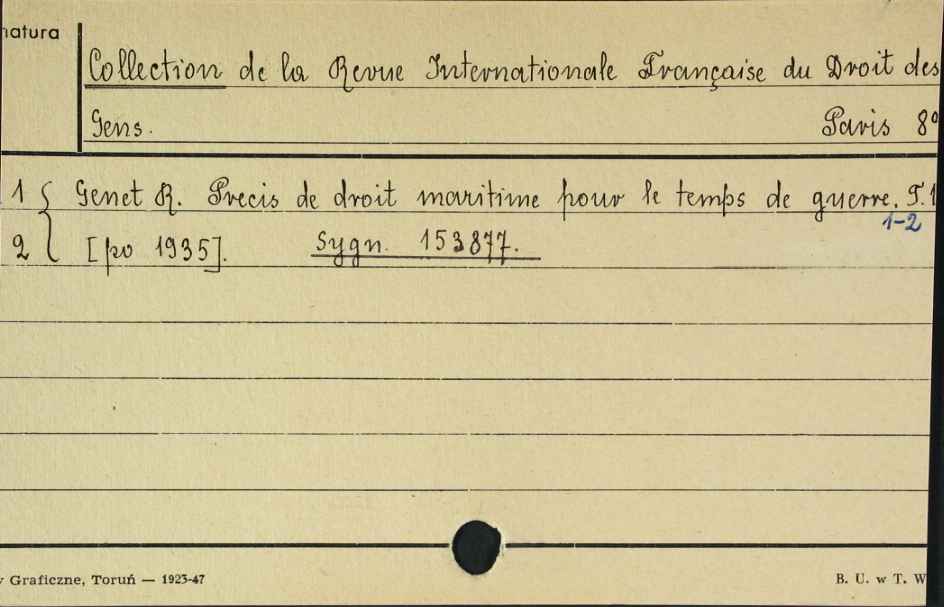 natura
Collection de la Revue Internationale Française du Droit des
Gens. Paris 8°
1 { Genet R. Precis de droit maritime pour le temps de guerre. T.1
1-2
2 [po 1935]. Sygn. 153877.
Graficzne, Toruń — 1923-47 B. U. w T. W